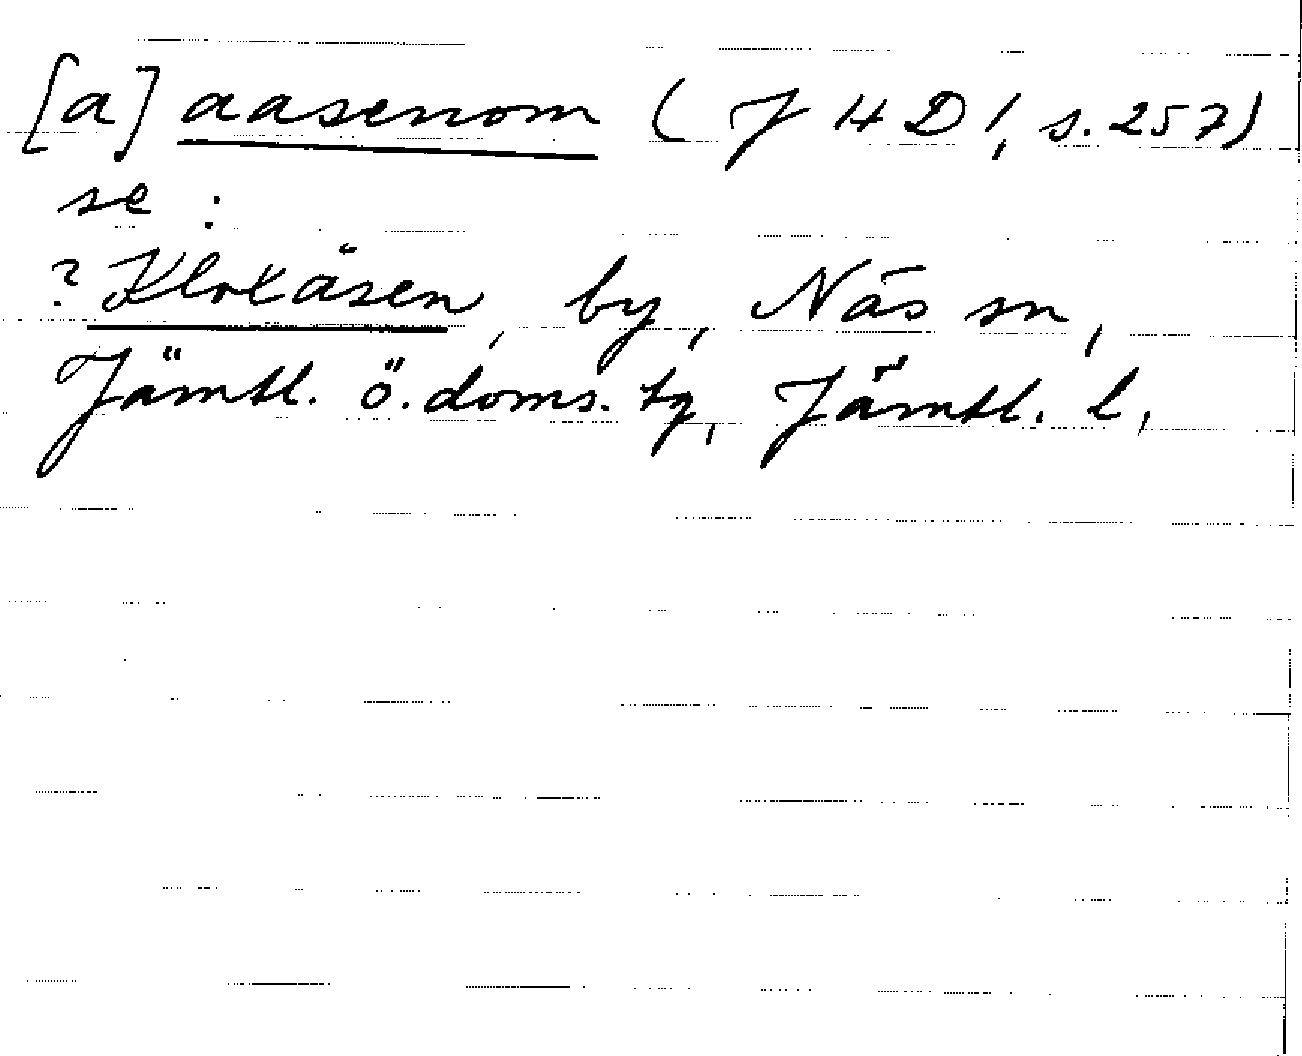 [a] aasenom (J H D 1, s. 257)
se :
? Klokåsen, by, Näs sn,
Jämtl. ö. doms. tg, Jämtl. l.